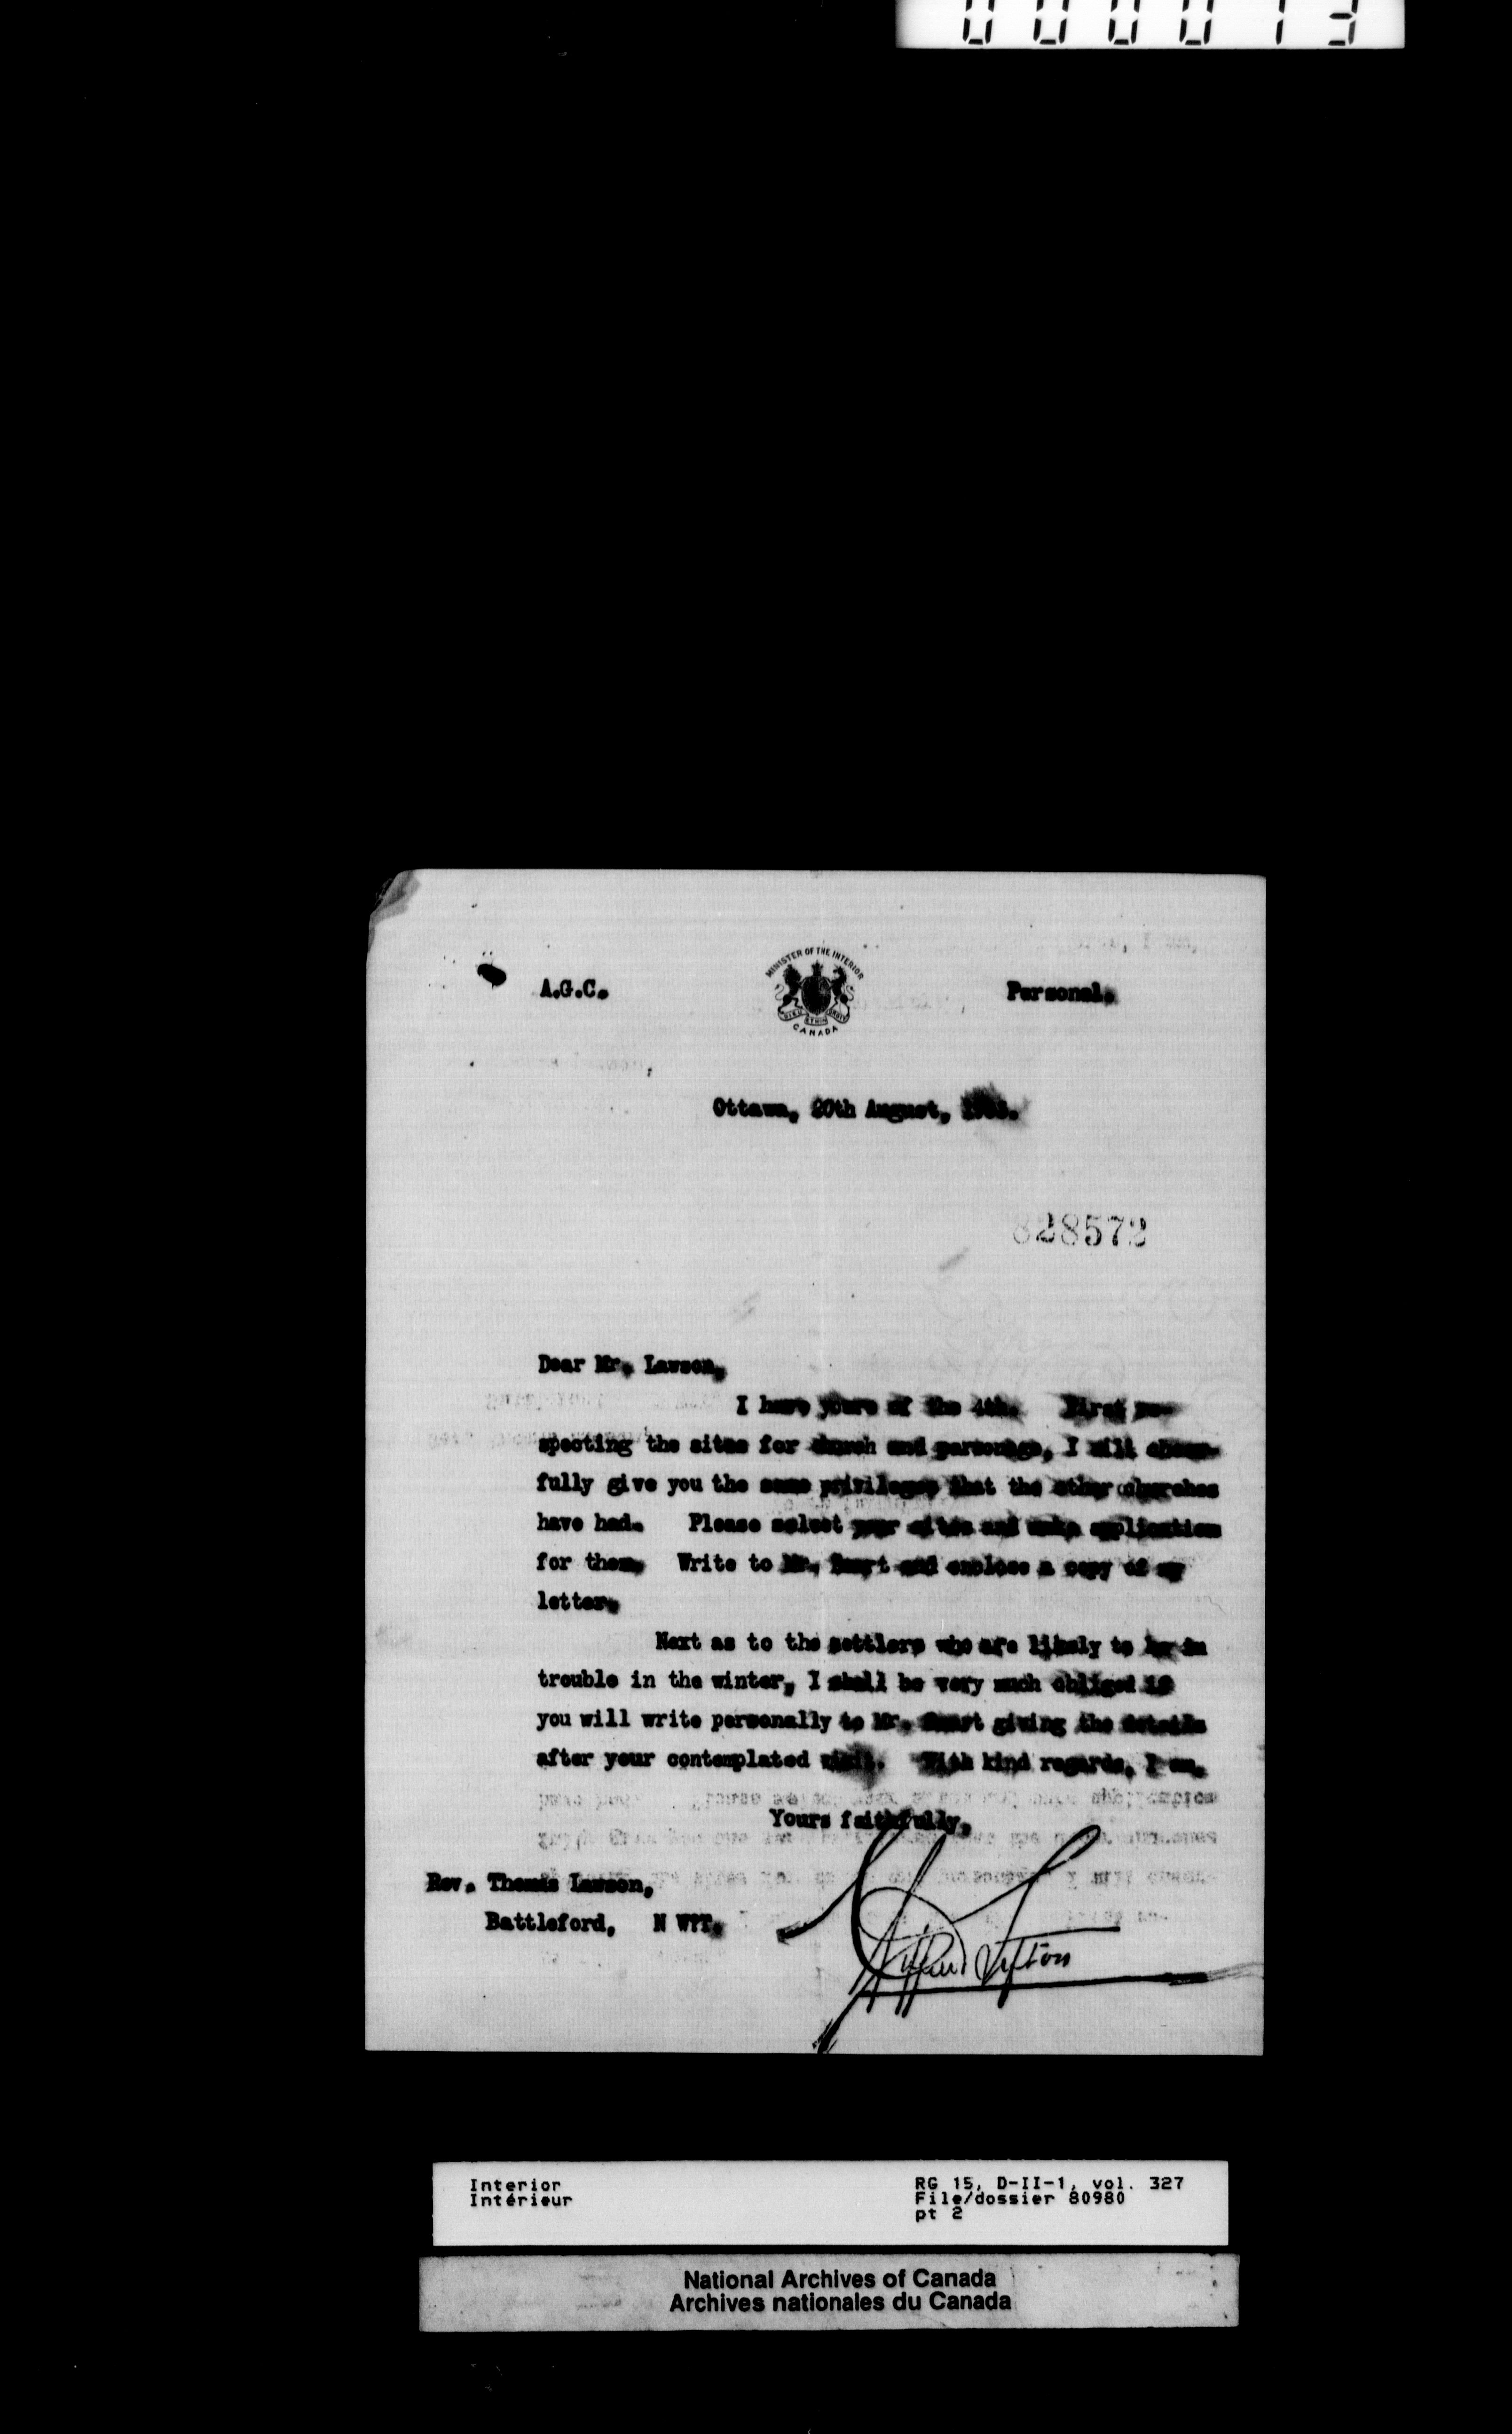 000013
A.G.C.
MINISTER OF THE INTERIOR
CANADA
Personal.
Ottawa, 20th August,
828572
Dear Mr. Lawson,
I have yours of the 4th. First re-
specting the sites for church and parsonage, I will cheer-
fully give you the same privileges that the other churches
have had. Please select your sites and make application
for them. Write to Mr. Smart and enclose a copy of my
letter.
Next as to the settlers who are likely to be in
trouble in the winter, I shall be very much obliged if
you will write personally to Mr. Smart giving the details
after your contemplated visit. With kind regards, I am,
Yours faithfully,
Clifford Sifton
Rev. Thomas Lawson,
Battleford, N W T.
Interior
Intérieur
RG 15, D-II-1, vol. 327
File/dossier 80980
pt 2
National Archives of Canada
Archives nationales du Canada